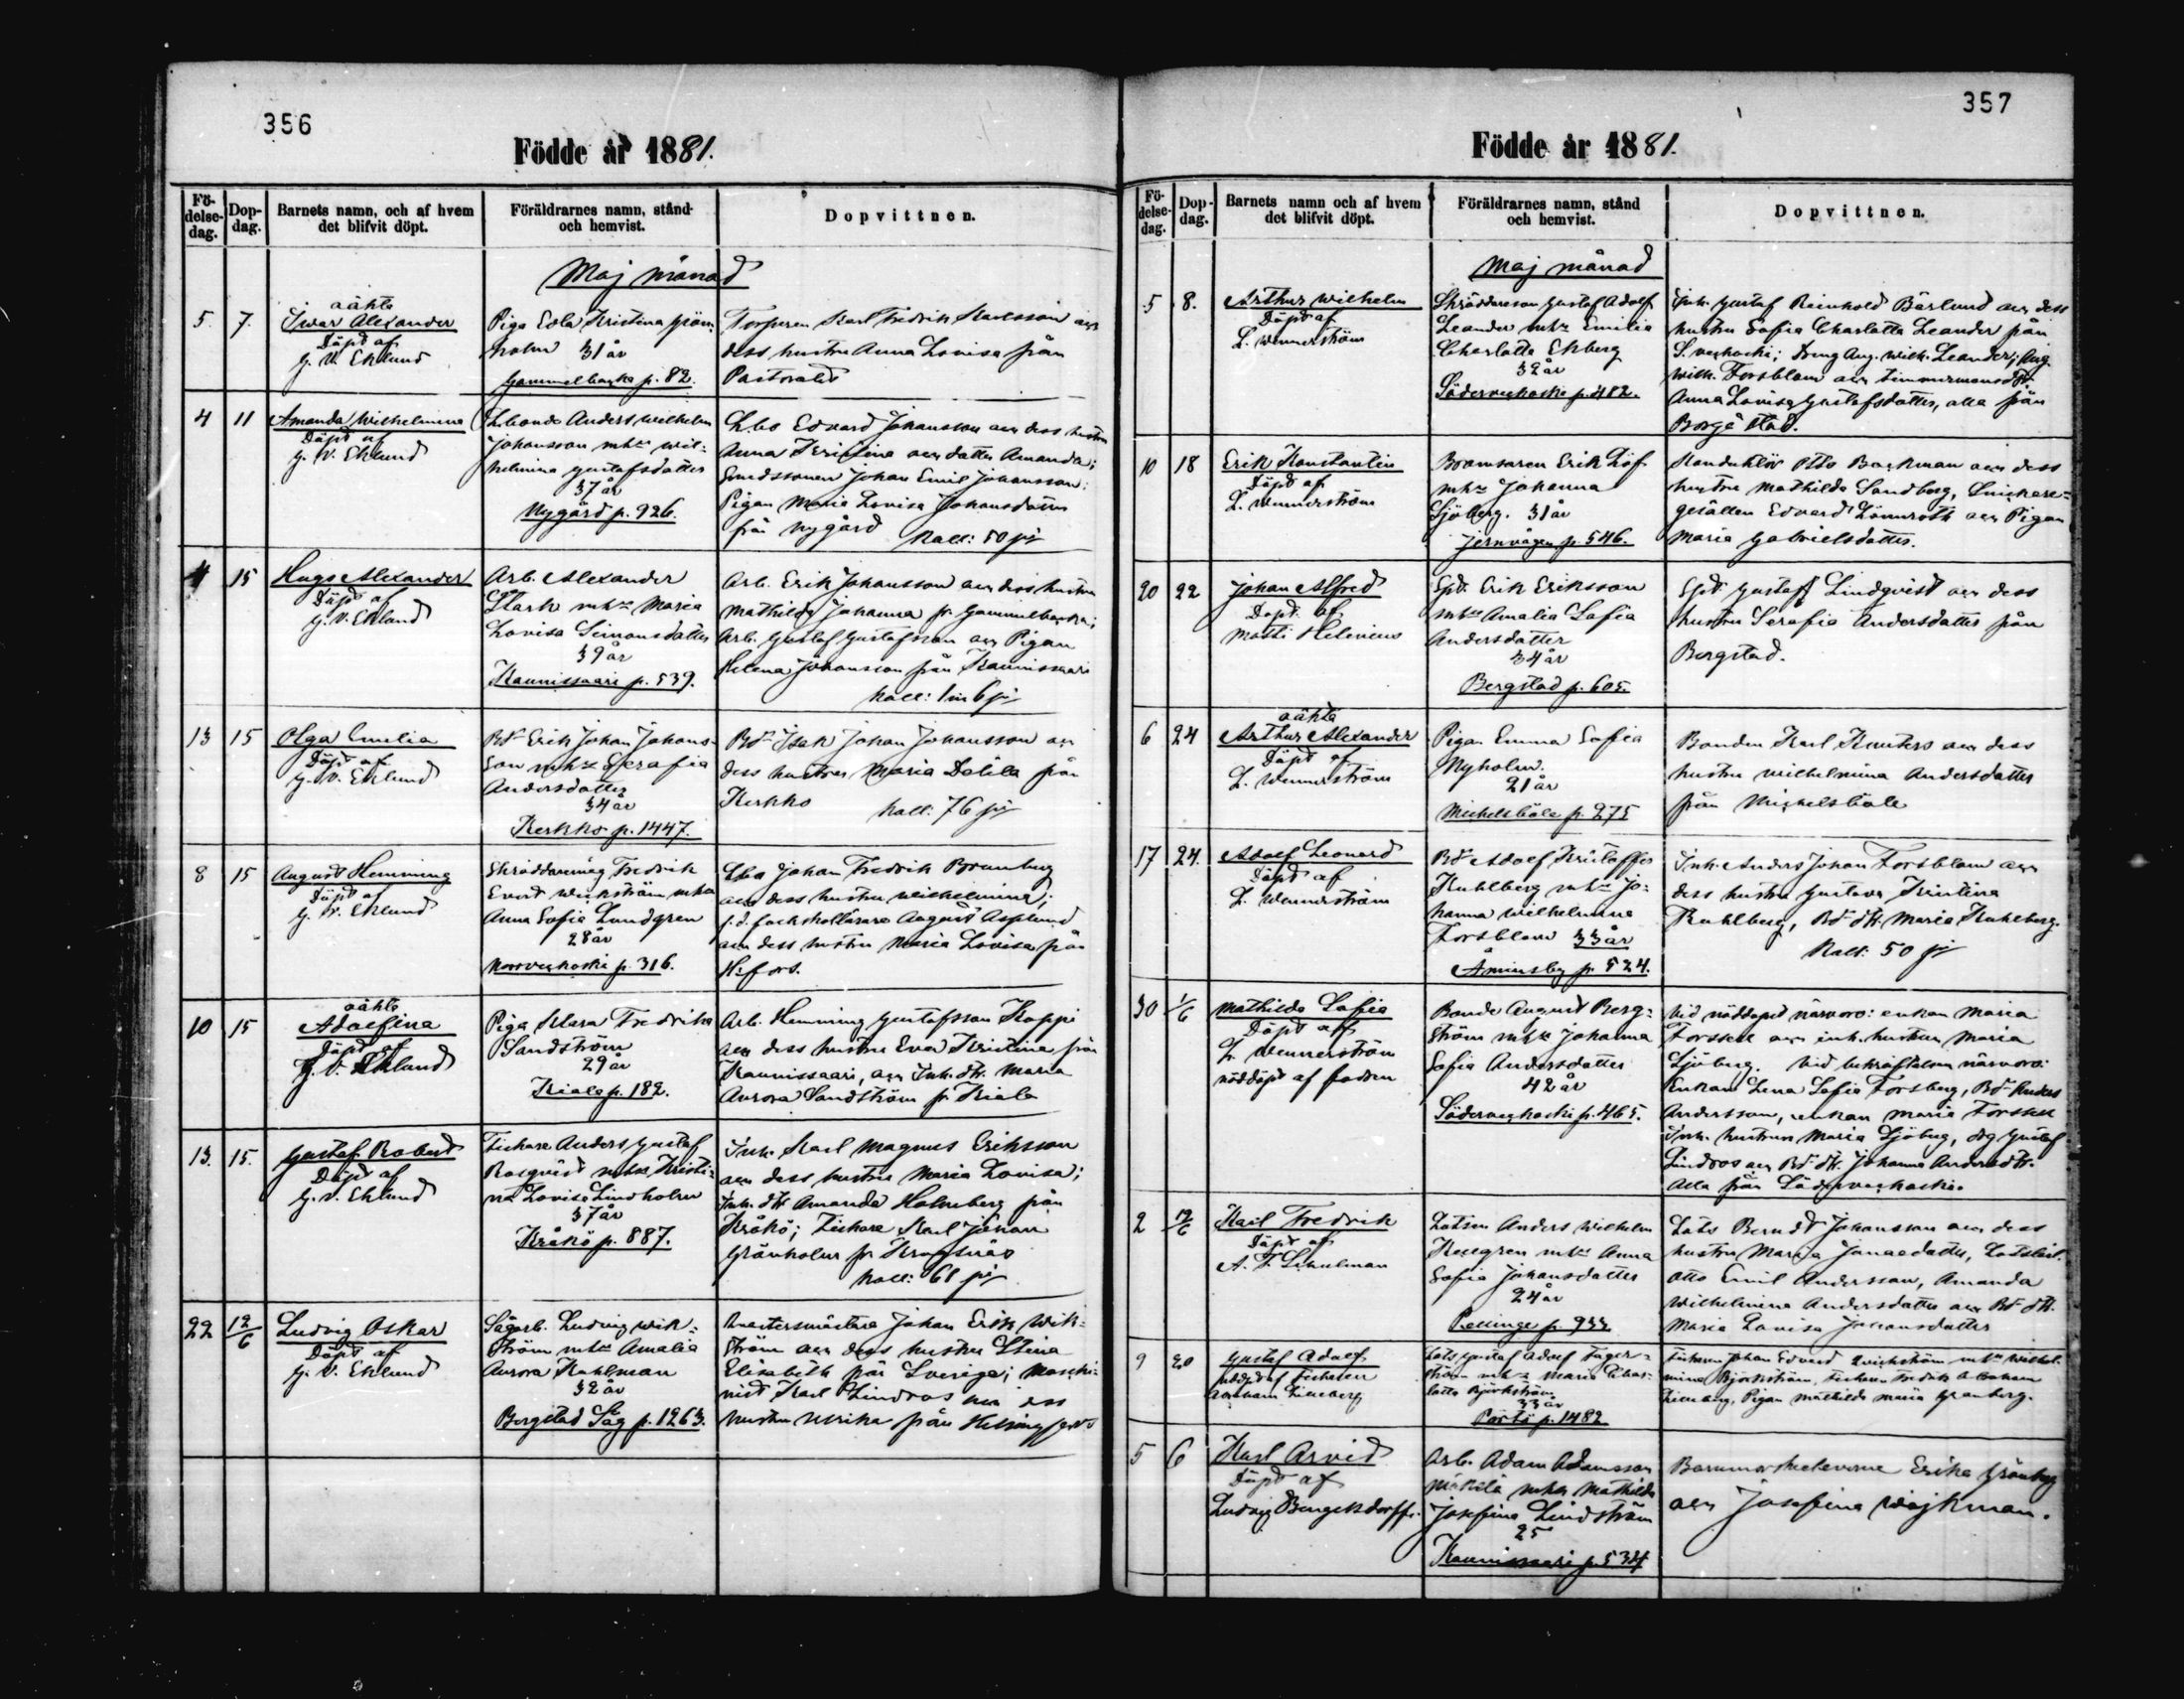 356
Födde år 1881.
Fö-
delse-
dag.
Dop-
dag.
Barnets namn, och af hvem
det blifvit döpt.
Föräldrarnes namn, stånd
och hemvist.
Dopvittnen.
Maj månad
5. 7.
oäkta
Iwar Alexander
Döpt af
G. V. Eklund
Piga Eva Kristina Grön-
holm 31 år
Gammelbacka p. 82.
Torparen Karl Fredrik Karlsson och
dess hustru Anna Lovisa från
4 11
Amanda Wilhelmina
Döpt af
G. V. Eklund
Anders Wilhelm
Johansson mhu Wil-
helmina Gustafsdotter
37 år
Nygård p. 926.
Edvard Johansson och dess hustru
Anna Kristina och dotter Amanda;
Johan Emil Johansson;
Pigan Maria Lovisa Johansdotter
från Nygård Koll: 50 pi
4 15
Hugo Alexander
Döpt af
G. V. Eklund
Arb. Alexander
Stark mhu Maria
Lovisa Simonsdotter
39 år
Kaunissaari p. 539.
Arb. Erik Johansson och dess hustru
Mathilda Johanna fr Gammelbacka;
Arb. Gustaf Gustafsson och Pigan
Helena Johansson från Kaunissaari
Koll: 1 m 6 pi
13 15
Olga Emilia
Döpt af
G. V. Eklund
Bd Erik Johan Johans-
son mhu Serafia
Andersdotter
34 år
Kerkko p. 1447.
Bd Isak Johan Johansson och
dess hustru Maria Delila från
Kerkko Koll: 76 pi
8 15
August Hemming
Döpt af
G. V. Eklund
Fredrik
Evert Wickström mhu
Anna Sofia Lundgren
28 år
Norrveckoski p. 316.
Johan Fredrik Bromberg
och dess hustru Wilhelmina;
August Asplund
och dess hustru Maria Lovisa från
H:fors.
10 15
oäkta
Adolfina
Döpt af
G. V. Eklund
Piga Klara Fredrika
Sandström
29 år
Kiala p. 182.
Arb. Hemming Gustafsson Koppi
och dess hustru Eva Kristina från
Kaunissaari, och Inh. dtr. Maria
Aurora Sandström fr Kiala
13. 15.
Gustaf Robert
Döpt af
G. V. Eklund
Fiskare Anders Gustaf
Rosqvist mhu Kristi-
na Lovisa Lindholm
37 år
Kråkö p. 887.
Inh. Karl Magnus Eriksson
och dess hustru Maria Lovisa;
Inh. dtr Amanda Holmberg från
Kråkö; Fiskare Karl Johan
Grönholm fr Kroksnäs
Koll: 68 pi
22 12/6
Ludvig Oskar
Döpt af
G. V. Eklund
Sågarb. Ludvig Wik-
ström mhu Amalia
Aurora Kahlman
32 år
Borgstad Såg p. 1263.
Johan Erik Wik-
ström och dess hustru Stina
Elisabeth från Sverige; Maski-
nist Karl Lindroos och dess
hustru Ulrika från Helsingfors
357
Födde år 1881.
Fö-
delse-
dag.
Dop-
dag.
Barnets namn och af hvem
det blifvit döpt.
Föräldrarnes namn, stånd
och hemvist.
Dopvittnen.
Maj månad
5 8.
Arthur Wilhelm
Döpt af
L. Wennerström
Skräddareson Gustaf Adolf
Leander mhu Emilia
Charlotta Ekberg
32 år
Söderveckoski p. 482.
Inh. Gustaf Reinhold Bärlund och dess
hustru Sofia Charlotta Leander från
S. veckoski; Dreng Aug. Wilh. Leander; Aug.
Wilh. Forsblom och timmermansdtr.
Anna Lovisa Gustafsdotter, alla från
Borgå stad.
10 18
Erik Konstantin
Döpt af
L. Wennerström
Bromsaren Erik Löf
mhu Johanna
Sjöberg. 31 år
Jernvägen p. 546.
Konduktör Otto Backman och dess
hustru Mathilda Sandberg, Snickare-
gesällen Edvard Lönnroth och Pigan
Maria Gabrielsdotter.
20 22
Johan Alfred
Döpt af
Matti Helenius
Erik Eriksson
mhu Amalia Sofia
Andersdotter
34 år
Bergstad p. 605.
Gustaf Lindqvist och dess
hustru Serafia Andersdotter från
Bergstad.
6 24
oäkta
Arthur Alexander
Döpt af
L. Wennerström
Pigan Emma Sofia
Nyholm.
21 år
Michelsböle p. 275
Bonden Karl Knuters och dess
hustru Wilhelmina Andersdotter
från Michelsböle
17 24.
Adolf Leonard
Döpt af
L. Wennerström
Bd Adolf Kristoffer
Kuhlberg mhu Jo-
hanna Wilhelmina
Forsblom 33 år
Åminsby p. 524.
Inh. Anders Johan Forsblom och
dess hustru Gustava Kristina
Kuhlberg, Bd dtr. Maria Kuhlberg.
Koll: 50 pi
30 1/6
Mathilda Sofia
Döpt af
L. Wennerström
nöddöpt af fadren
Bonde August Berg-
ström mhu Johanna
Sofia Andersdotter
42 år
Söderveckoski p. 465.
Vid nöddopet närvoro: enkan Maria
Forssell och inh. hustrun Maria
Sjöberg. Vid bekräftelsen närvoro:
Enkan Lena Sofia Forsberg, Bd Anders
Andersson, enkan Maria Forssell
Inh. hustrun Maria Sjöberg, drg Gustaf
Lindroos och Bd dtr. Johanna Andersdtr.
Alla från Söderveckoski.
2 12/6
Karl Fredrik
Döpt af
A. F. Schulman
Lotsen Anders Wilhelm
Kullgren mhu Anna
Sofia Johansdotter
24 år
Pellinge p. 933
Lots Berndt Johansson och dess
hustru Maria Jonaedotter,
Otto Emil Andersson, Amanda
Wilhelmina Andersdotter och Bd dtr.
Maria Lovisa Johansdotter
9 20
Gustaf Adolf
nöddöpt af Fiskaren
Abraham
Lots Gustaf Adolf Fager-
ström mhu Maria Char-
lotta Björkström
33 år
Pörtö p. 1482
Fiskaren Johan Edvard Qvickström mhu Wilhel-
mina Björkström, Fiskaren Fredrik Abraham
Pigan Mathilda Maria Granberg.
5 6
Karl Arvid
Döpt af
Ludvig Bengelsdorff.
Arb. Adam Adamsson
mhu Mathilda
Josefina Lindström
25
Kaunissaari p. 534
Barnmorskeleverna Erika Grönberg
och Josefina Wijkman.